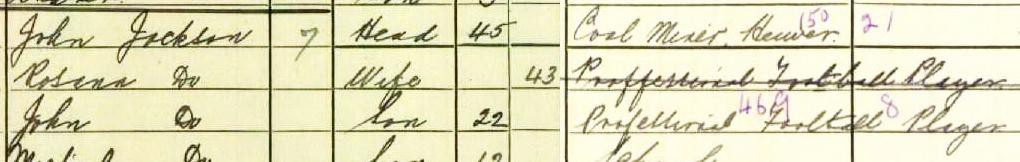 John Jackson 7 Head 45 Coal Miner, Hewer. 150 21
Rosana Do Wife 43 Proffessional Football Player
John Do Son 22 Professional Football Player 469 8
Do